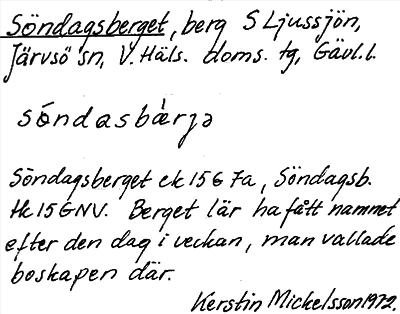 Söndagsberget, berg S Ljussjön,
Järvsö sn, V. Häls. doms. tg, Gävl. l.
söndasbærjə
Söndagsberget ek 15 G 7a, Söndagsb.
tk 15 G NV. Berget lär ha fått namnet
efter den dag i veckan, man vallade
boskapen där.
Kerstin Mickelsson 1972.